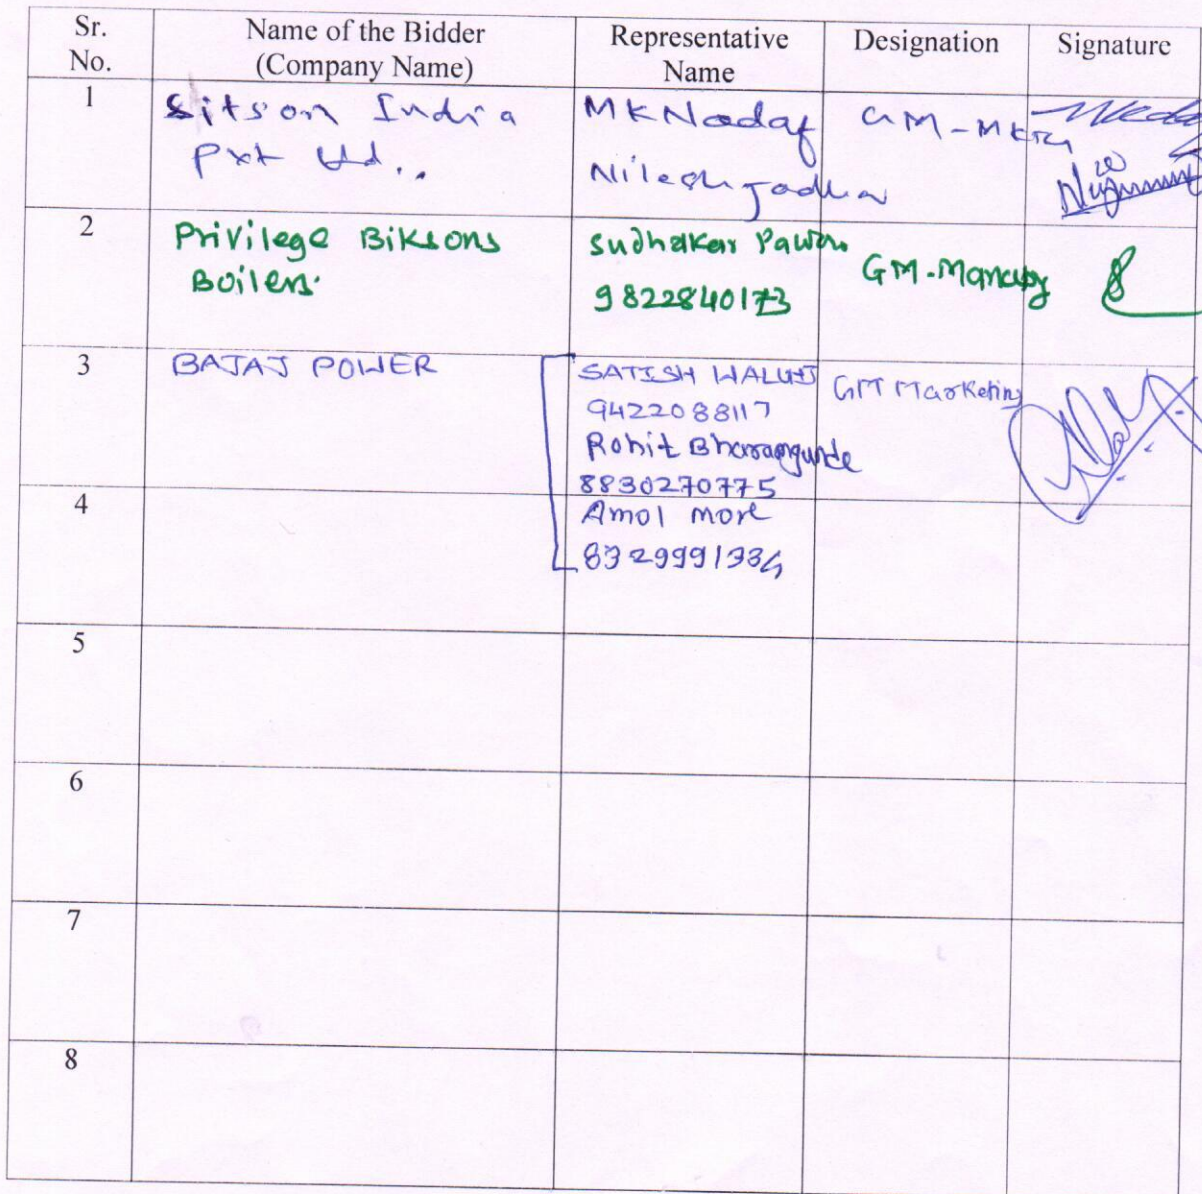 Sr. No.
Name of the Bidder (Company Name)
Representative Name
Designation
Signature
1
Sitson India
Pvt Ltd..
MK Nadaf
Nilesh
GM-MKTG
2
Privilege Biksons
Boilers.
Sudhakar Pawar
9822840173
GM-
3
BAJAJ POWER
SATISH WALUNJ
9422088117
GM Marketing
Rohit
8830270775
4
Amol more
5
6
7
8